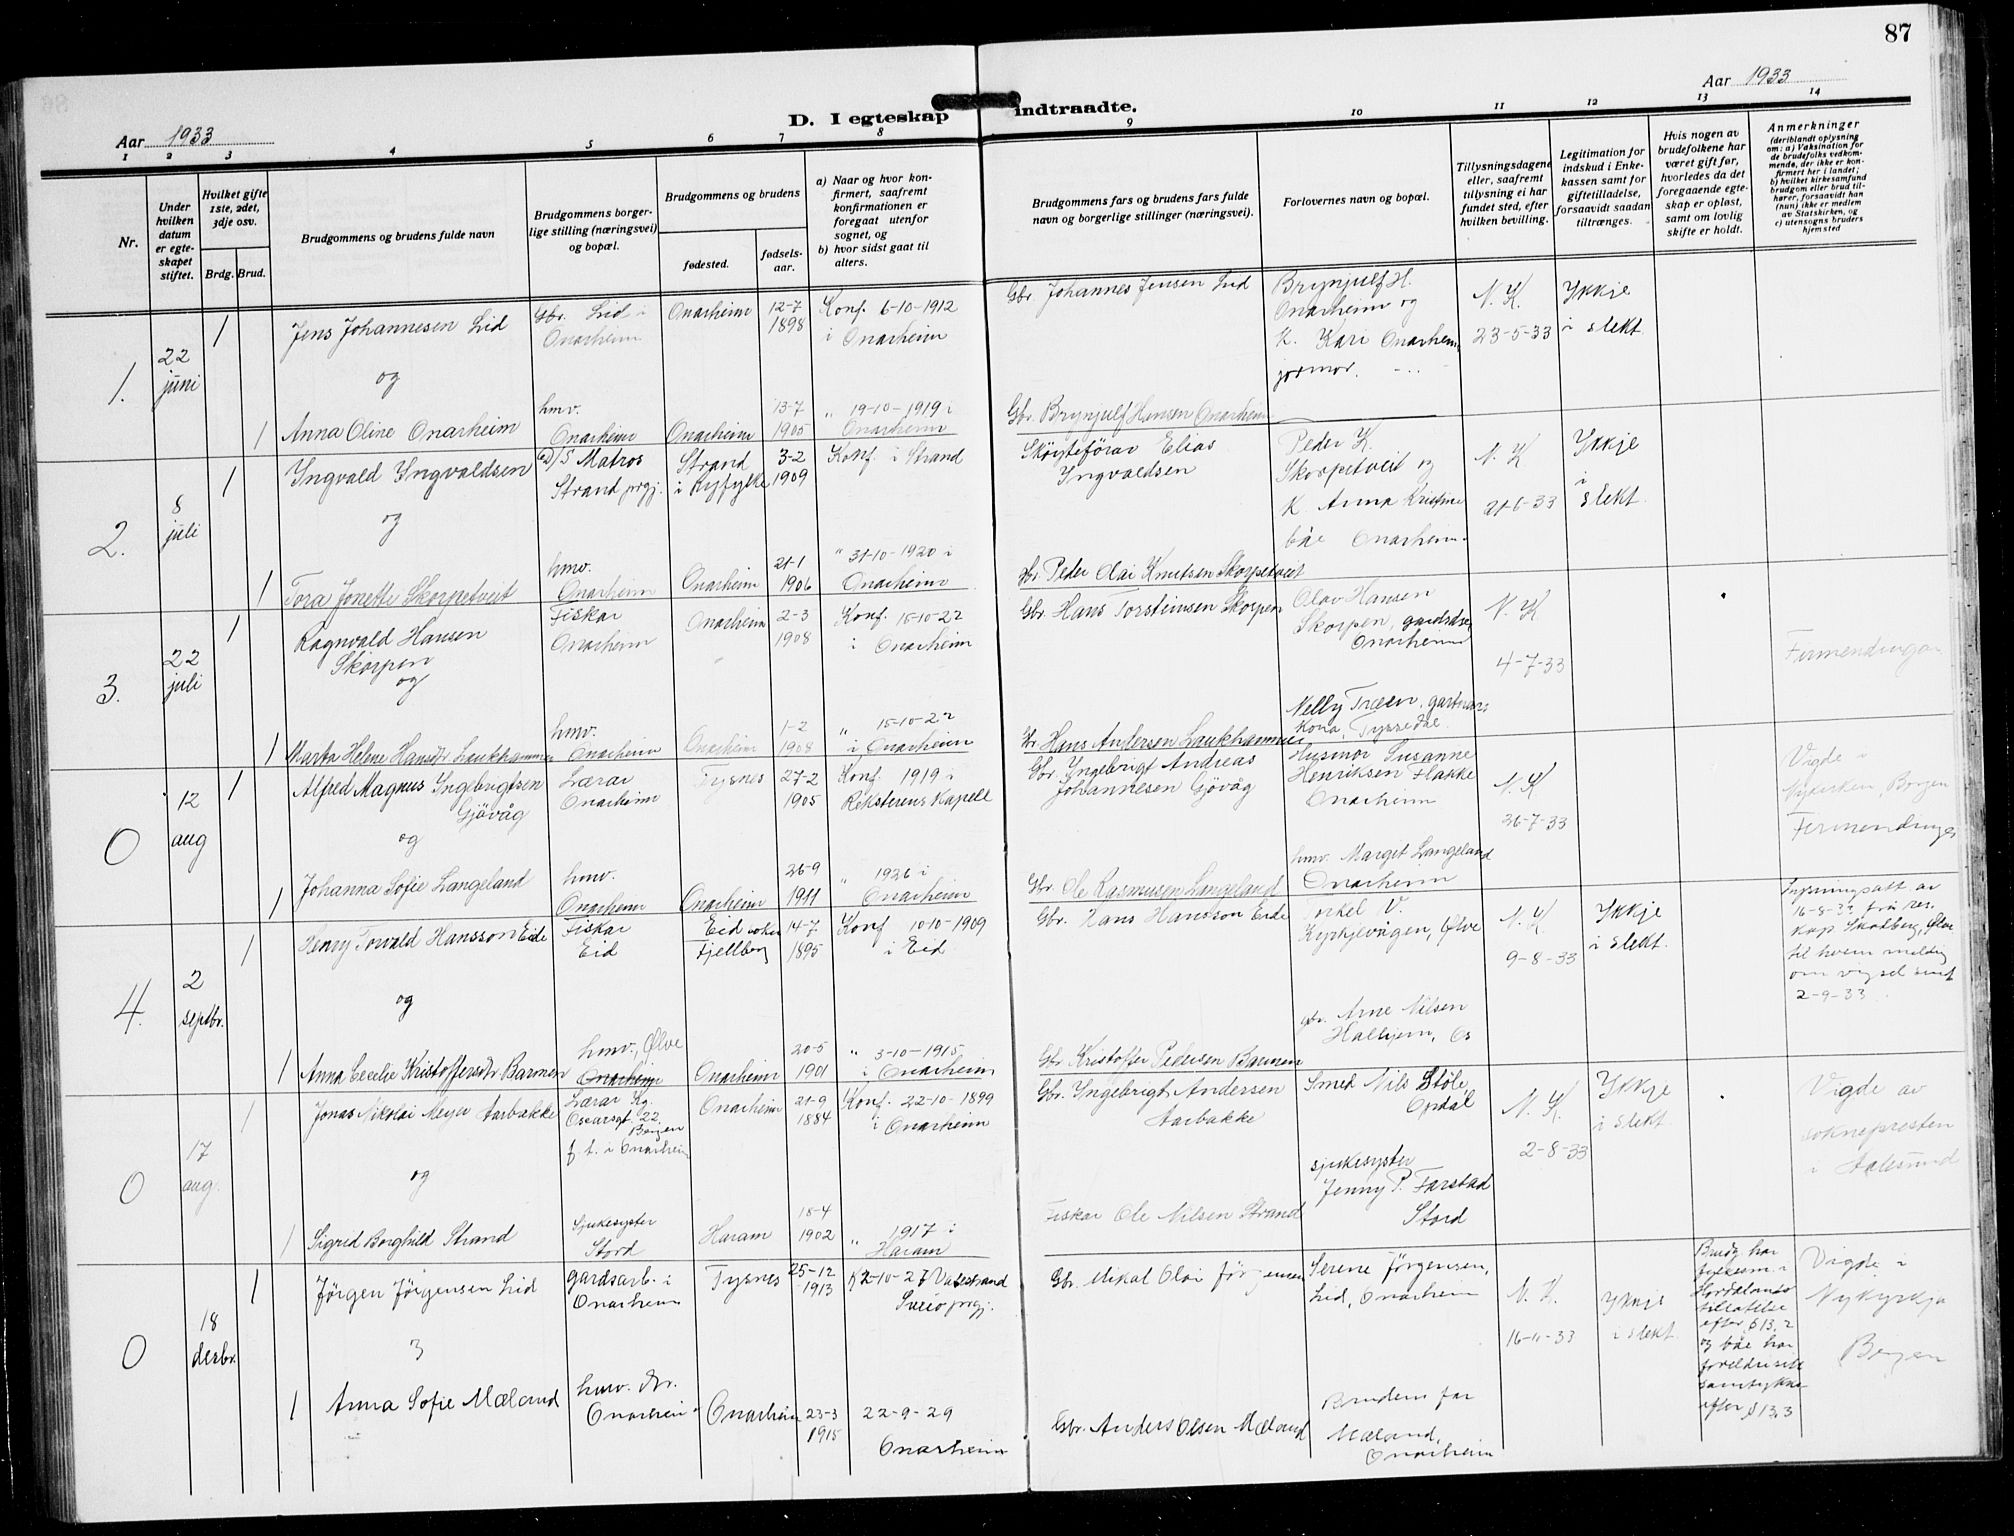 87
Aar 1933
D. I egteskap indtraadte.
Aar 1933
1 2 3 4 5 6 7 8 9 10 11 12 13 14
Nr.
Under hvilken datum er egteskapet stiftet.
Hvilket gifte 1ste, 2det, 3dje osv.
Brdg. Brud.
Brudgommens og brudens fulde navn
Brudgommens borgerlige stilling (næringsvei) og bopæl.
Brudgommens og brudens
fødested.
fødselsaar.
a) Naar og hvor konfirmert, saafremt konfirmationen er foregaat utenfor sognet, og
b) hvor sidst gaat til alters.
Brudgommens fars og brudens fars fulde navn og borgerlige stillinger (næringsvei).
Forlovernes navn og bopæl.
Tillysningsdagene eller, saafremt tillysning ei har fundet sted, efter hvilken bevilling.
Legitimation for indskud i Enkekassen samt for giftetilladelse, forsaavidt saadan tiltrænges.
Hvis nogen av brudefolkene har været gift før, hvorledes da det foregaaende egteskap er opløst, samt om lovlig skifte er holdt.
Anmerkninger
(deriblandt oplysning om: a) Vaksination for de brudefolks vedkommende, der ikke er konfirmert her i landet; b) hvilket kirkesamfund brudgom eller brud tilhører, forsaavidt han (hun) ikke er medlem av Statskirken, og c) utensogns bruders hjemsted
1. 22 juni
1 Jens Johannesen Lid
Gbr. Lid i Onarheim
Onarheim
12-7 1898
Konf. 6-10-1912 i Onarheim
Gbr. Johannes Jensen Lid
Brynjulf H. Onarheim og
K. Kari Onarheim, jormor.
N. K.
23-5-33
Ikkje i slekt
og
1 Anna Oline Onarheim
hmv. Onarheim
Onarheim
13-7 1905
" 19-10-1919 i Onarheim
Gbr. Brynjulf Hansen Onarheim
2. 8 juli
1 Yngvald Yngvaldsen
D/S Matros Strand prgj.
Strand i Ryfylke
3-2 1909
Konf. i Strand
Skøyteförar Elias Yngvaldsen
Peder K. Skorpetveit og
K. Anna Kristine
båe Onarheim.
N. K
21-6-33
Ikkje i slekt.
og
1 Tora Jonette Skorpetveit
hmv. Onarheim
Onarheim
21-1 1906
" 31-10-1920 i Onarheim
Gbr. Peder Olai Knutsen Skorpetveit
3. 22 juli
1 Ragnvald Hansen Skorpen
Fiskar Onarheim
Onarheim
2-3 1908
Konf. 15-10-22 i Onarheim
Gbr. Hans Torsteinsen Skorpen
Olav Hansen Skorpen, Onarheim
N. K
4-7-33
og
1 Marta Helene Hansdr Laukhammer
hmv. Onarheim
Onarheim
1-2 1908
" 15-10-22 i Onarheim
Hans Andersen Laukhammer
Nelly Træen, gartnars kona, Tyssedal
0 12 aug
1 Alfred Magnus Ingebrigtsen Gjövåg
Lærar Onarheim
Tysnes
27-2 1905
Konf. 1919 i Reksterens Kapell
Gbr. Yngebrigt Andreas Johannesen Gjövåg
Husmor Susanne Henriksen Flakke Onarheim
N. K
26-7-33
Vigde i Nykirken, Bergen
og
1 Johanna Sofie Langeland
hmv. Onarheim
Onarheim
26-9 1911
" 1926 i Onarheim
Gbr. Ole Rasmussen Langeland
hmv. Margit Langeland Onarheim
4. 2 septbr.
1 Henry Torvald Hansson Eide
Fiskar Eid
Eid sokn Fjellberg
14-7 1895
Konf 10-10-1909 i Eid
Gbr. Hans Hansson Eide
Torkel V. Kyrkjevågen, Ølve
N. K.
9-8-33
Ikkje i slekt.
Lysningsatt. av 16-8-33 frå res. kap Skatberg, Ølve til hvem melding om vigsel sendt 2-9-33
og
1 Anna Cecelie Kristoffersdr Barmen
hmv., Ølve
Onarheim
Onarheim
20-5 1901
" 3-10-1915 i Onarheim
Gbr Kristoffer Pedersen Barmen
gbr. Arne Nilsen Halhjem, Os
0 17 aug.
1 Jonas Nikolai Meyer Aarbakke
Lærar Kg. Oscarsgt 22, Bergen f. t. i Onarheim
Onarheim
21-9 1884
Konf. 22-10-1899 i Onarheim
Gbr. Yngebrigt Andersen Aarbakke
Smed Nils Støle Opdal
N. K.
2-8-33
Ikkje i slekt.
Vigde av soknepresten i Aalesund
og
1 Sigrid Borghild Strand
Sjukesyster Stord
Haram
18-4 1902
" 1917 i Haram
Fiskar Ole Nilsen Strand
sjukesyster Jenny P. Farstad Stord
0 18 desbr.
1 Jørgen Jørgensen Lid
gardsarb. i Onarheim
Tysnes
25-12 1913
K 2-10-27 Valestrand Sveio prgj.
Gbr. Mikal Olai Jørgensen
Serene Jørgensen, Lid, Onarheim
N. K.
16-11-33
Ikkje i slekt.
Brudg har fylkesm. i Hordalands tillatelse efter § 13,2 og båe har foreldrasitt samtykke efter § 13,3
Vigde i Nykyrkja Bergen
1 Anna Sofie Mæland
hmv. Onarheim
Onarheim
23-3 1915
22-9-29 Onarheim
Gbr. Anders Olsen Mæland
Brudens far Mæland, Onarheim